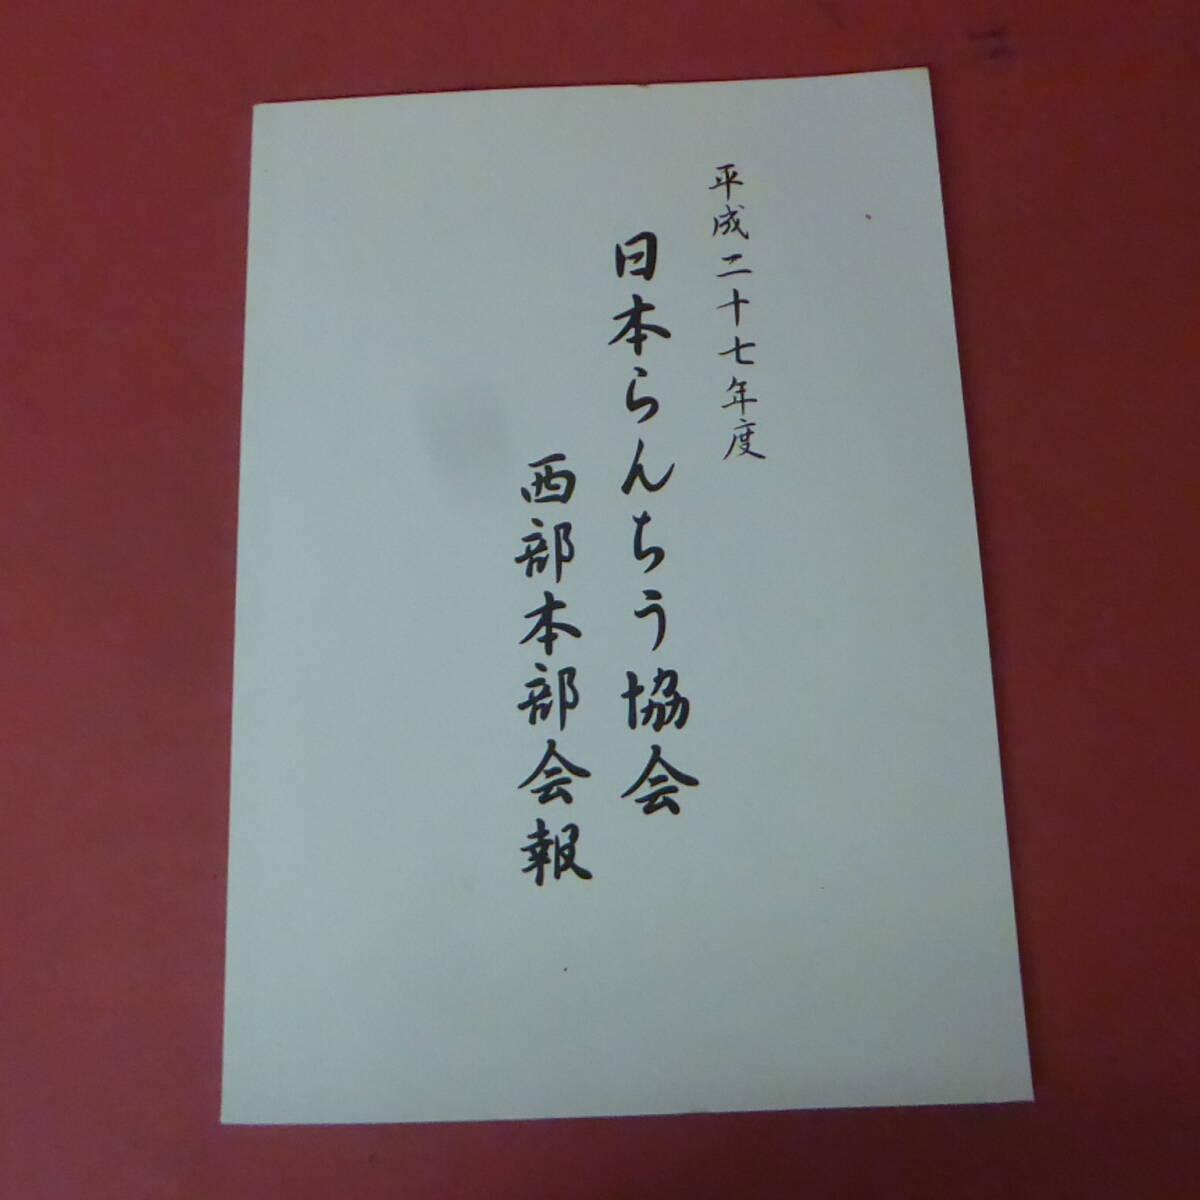 平成二十七年度
日本らんちう協会
西部本部会報